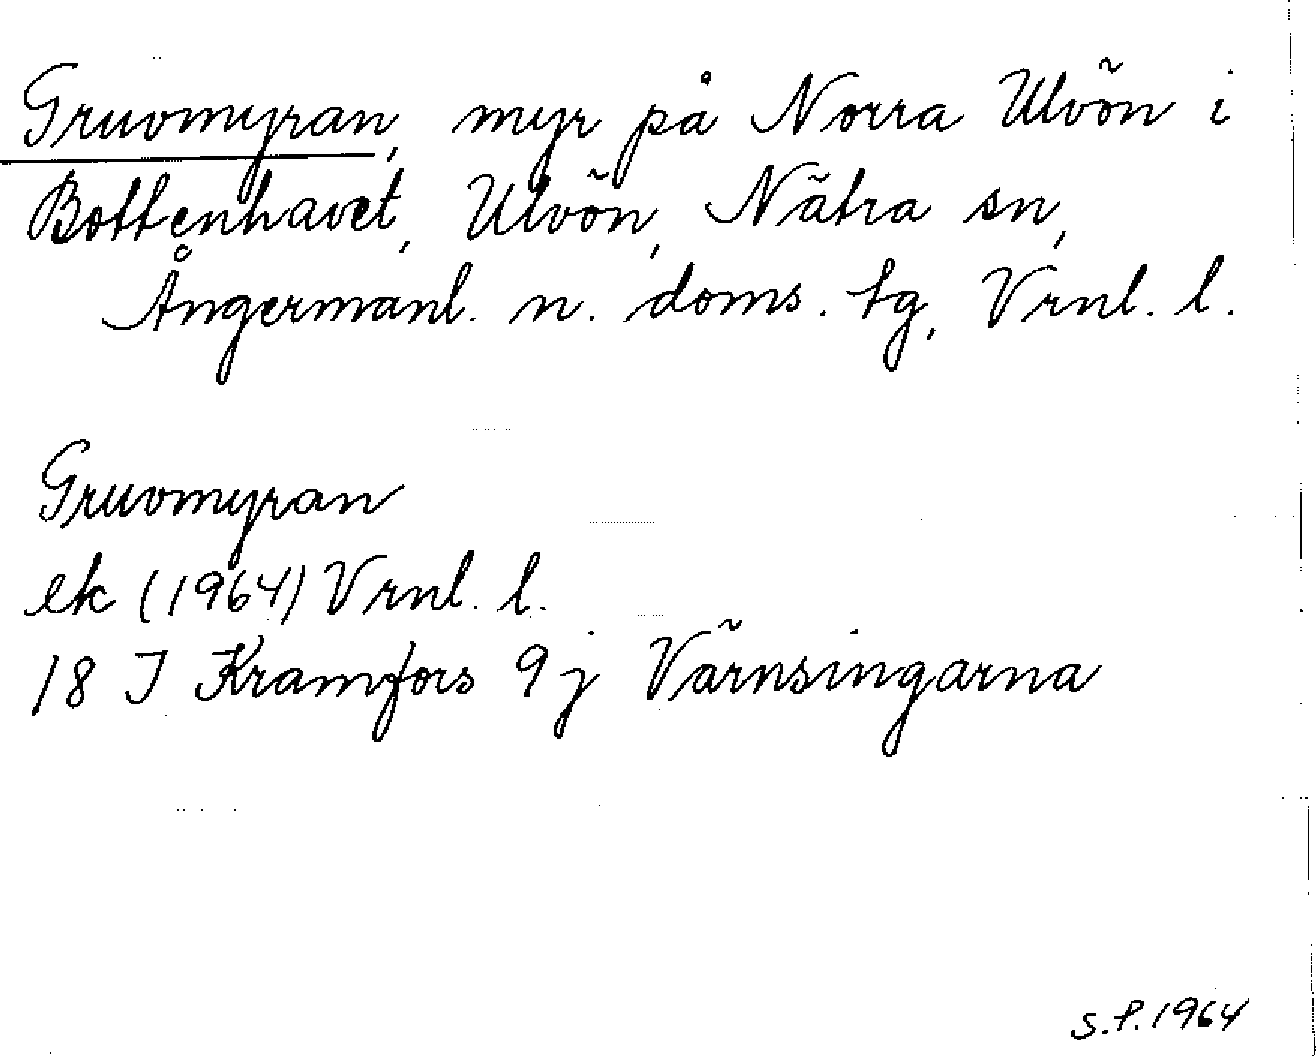 Gruvmyran, myr på Norra Ulvön i
Bottenhavet, Ulvön, Nätra sn,
Ångermanl. n. doms. tg, Vrnl. l.
Gruvmyran
ek (1964) Vrnl. l.
18 I Kramfors 9 j Värnsingarna
S.P. 1964